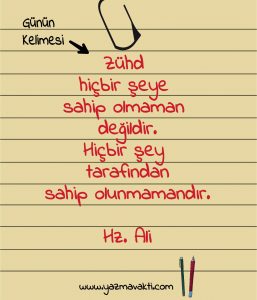 Günün
Kelimesi
Zühd
hiçbir şeye
sahip olmaman
değildir.
Hiçbir şey
tarafından
sahip olunmamandır.
Hz. Ali
www.yazmavakti.com